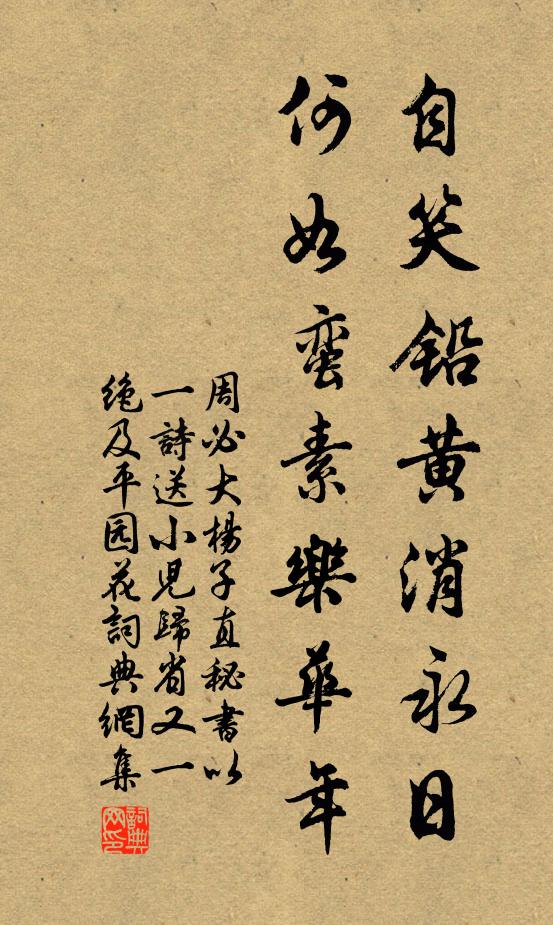 自笑鉛黄消永日
何如蛮素樂華年
周必大楊子直秘書以
一詩送小児歸省又一
絶及平园花詞典網集
詞典网印